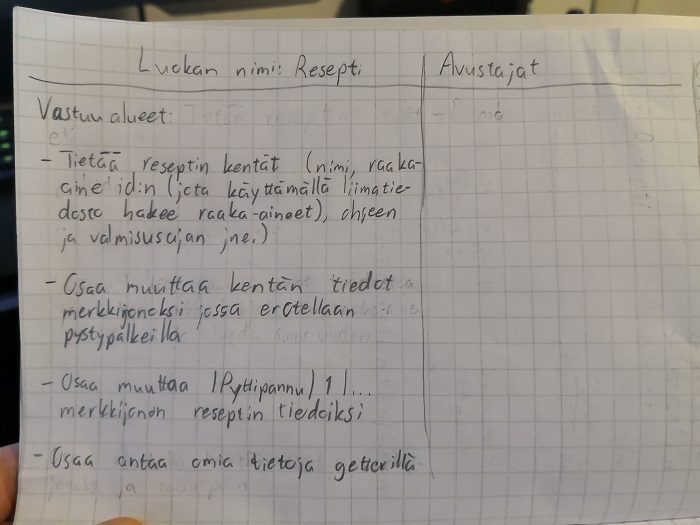 Luokan nimi: Resepti
Avustajat
Vastuualueet:
- Tietää reseptin kentät (nimi, raaka-
aine id:n (jota käyttämällä liimatie-
dosto hakee raaka-aineet), ohjeen
ja valmisusajan jne.)
- Osaa muuttaa kentän tiedot
merkkijonoksi jossa erotellaan
pystypalkeilla
- Osaa muuttaa |Pyttipannu| 1 |...
merkkijonon reseptin tiedoiksi
- Osaa antaa omia tietoja getterillä